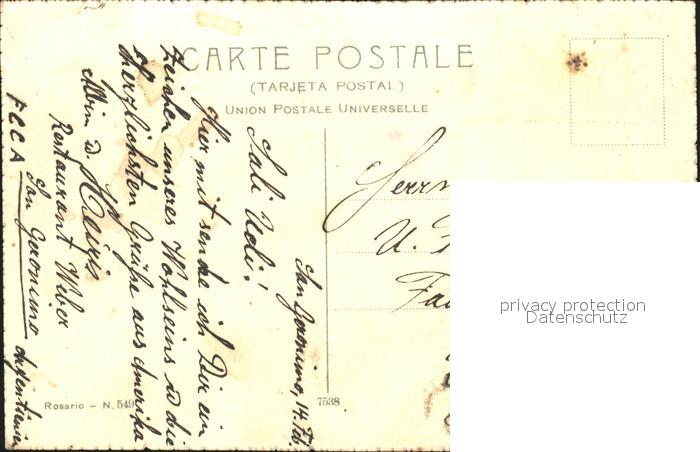 CARTE POSTALE
(TARJETA POSTAL)
UNION POSTALE UNIVERSELLE
San Geronimo, 14. Feb.
Sali Ueli!
Hier mit sende ich Dir ein
Zeichen unseres Wohlseins u die
herzlichsten Grüße aus Amerika
Albin u. Heiri
Restaurant Weber
San Geronimo
F C C A Argentinien
Herrn
U.
Rosario – N. 549
7538
privacy protection
Datenschutz